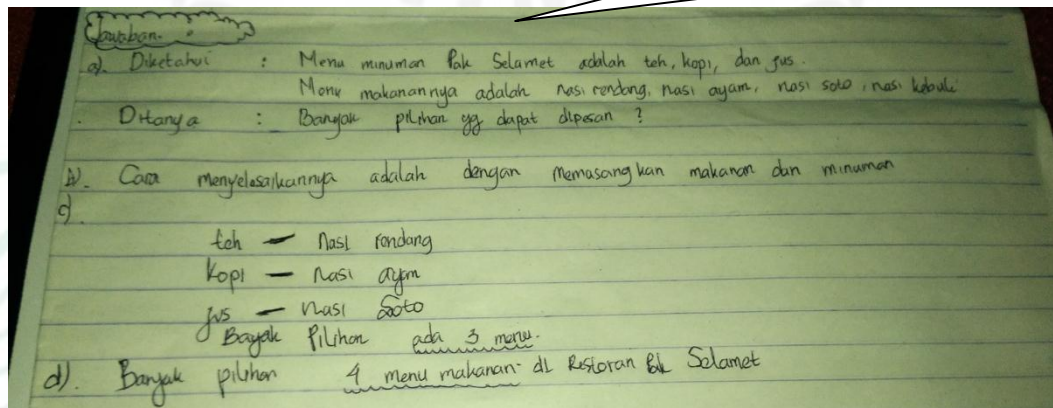 Jawaban :
a). Diketahui : Menu minuman Pak Selamet adalah teh, kopi, dan jus.
Menu makanannya adalah nasi rendang, nasi ayam, nasi soto, nasi kebuli
Ditanya : Banyak pilihan yg dapat dipesan ?
b). Cara menyelesaikannya adalah dengan memasangkan makanan dan minuman
c).
teh — nasi rendang
kopi — nasi ayam
jus — nasi Soto
Bayak Pilihan ada 3 menu.
d). Banyak pilihan 4 menu makanan di Restoran Pak Selamet